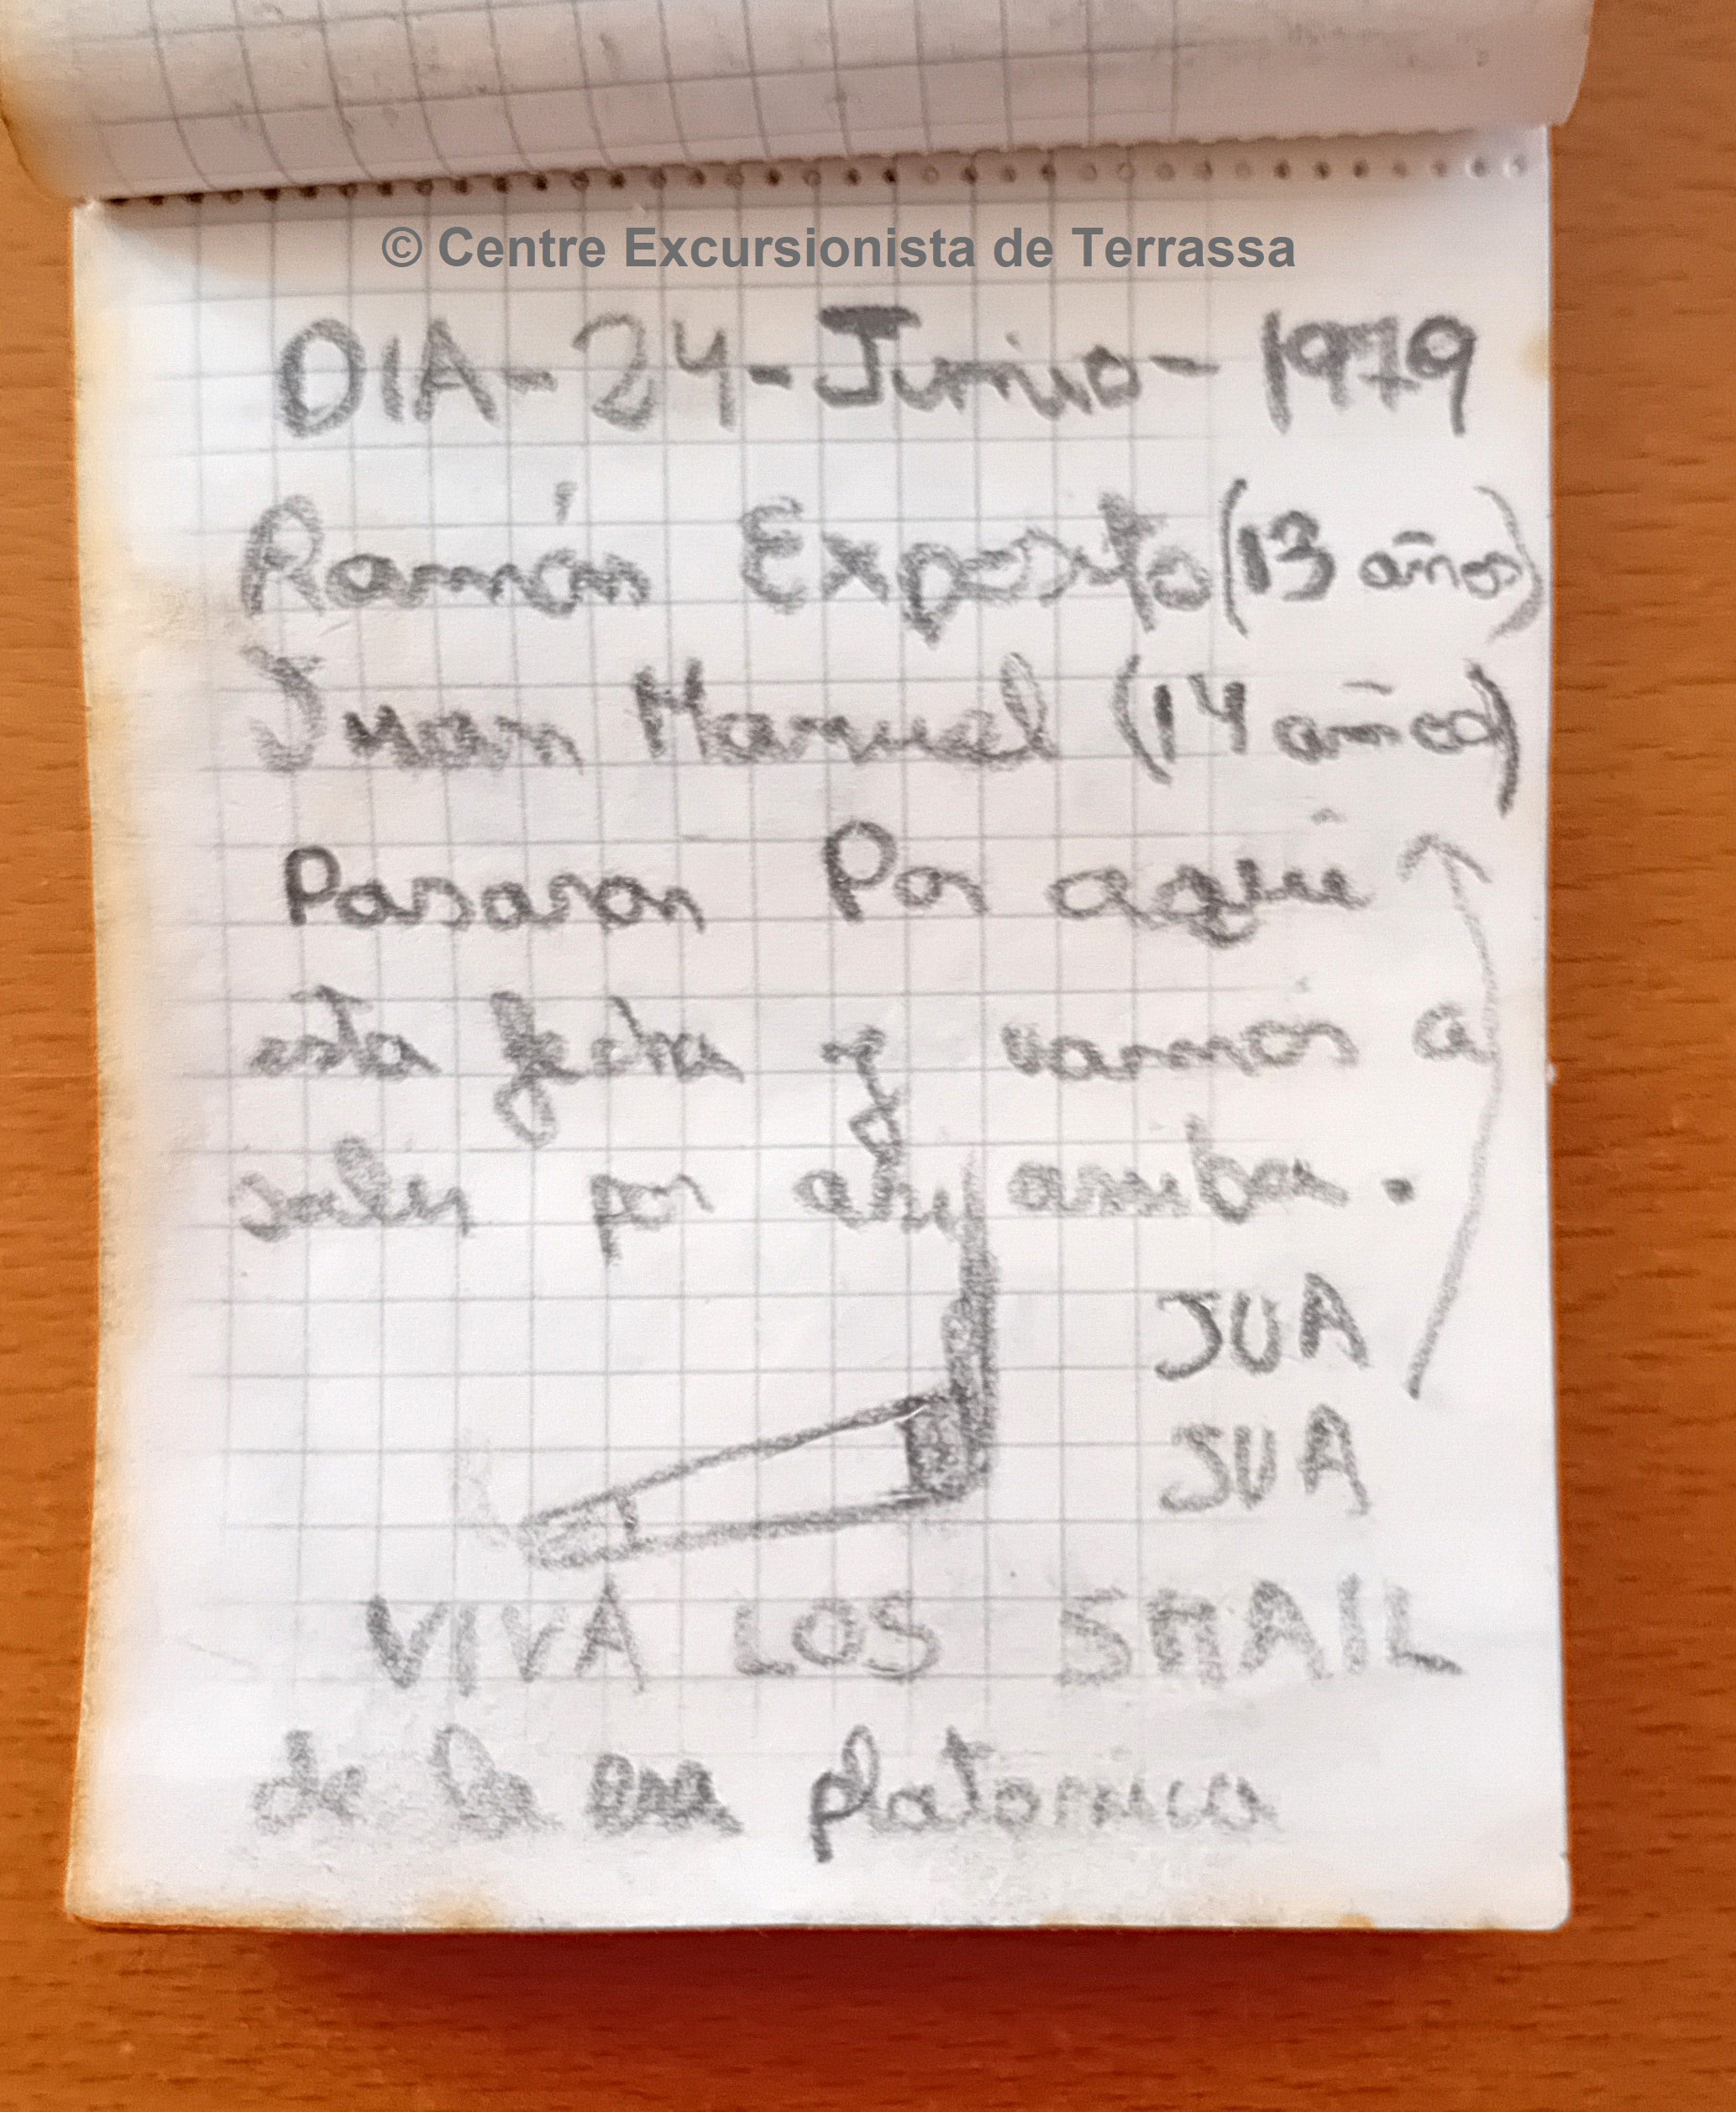 © Centre Excursionista de Terrassa
DIA-24-Junio-1979
Ramón Exposito (13 años)
Juan Manuel (14 años)
Pasaron Por aqui
esta fecha y vamos a
salir por ahy arriba.
JUA
JUA
VIVA LOS SMAIL
de la era platonica